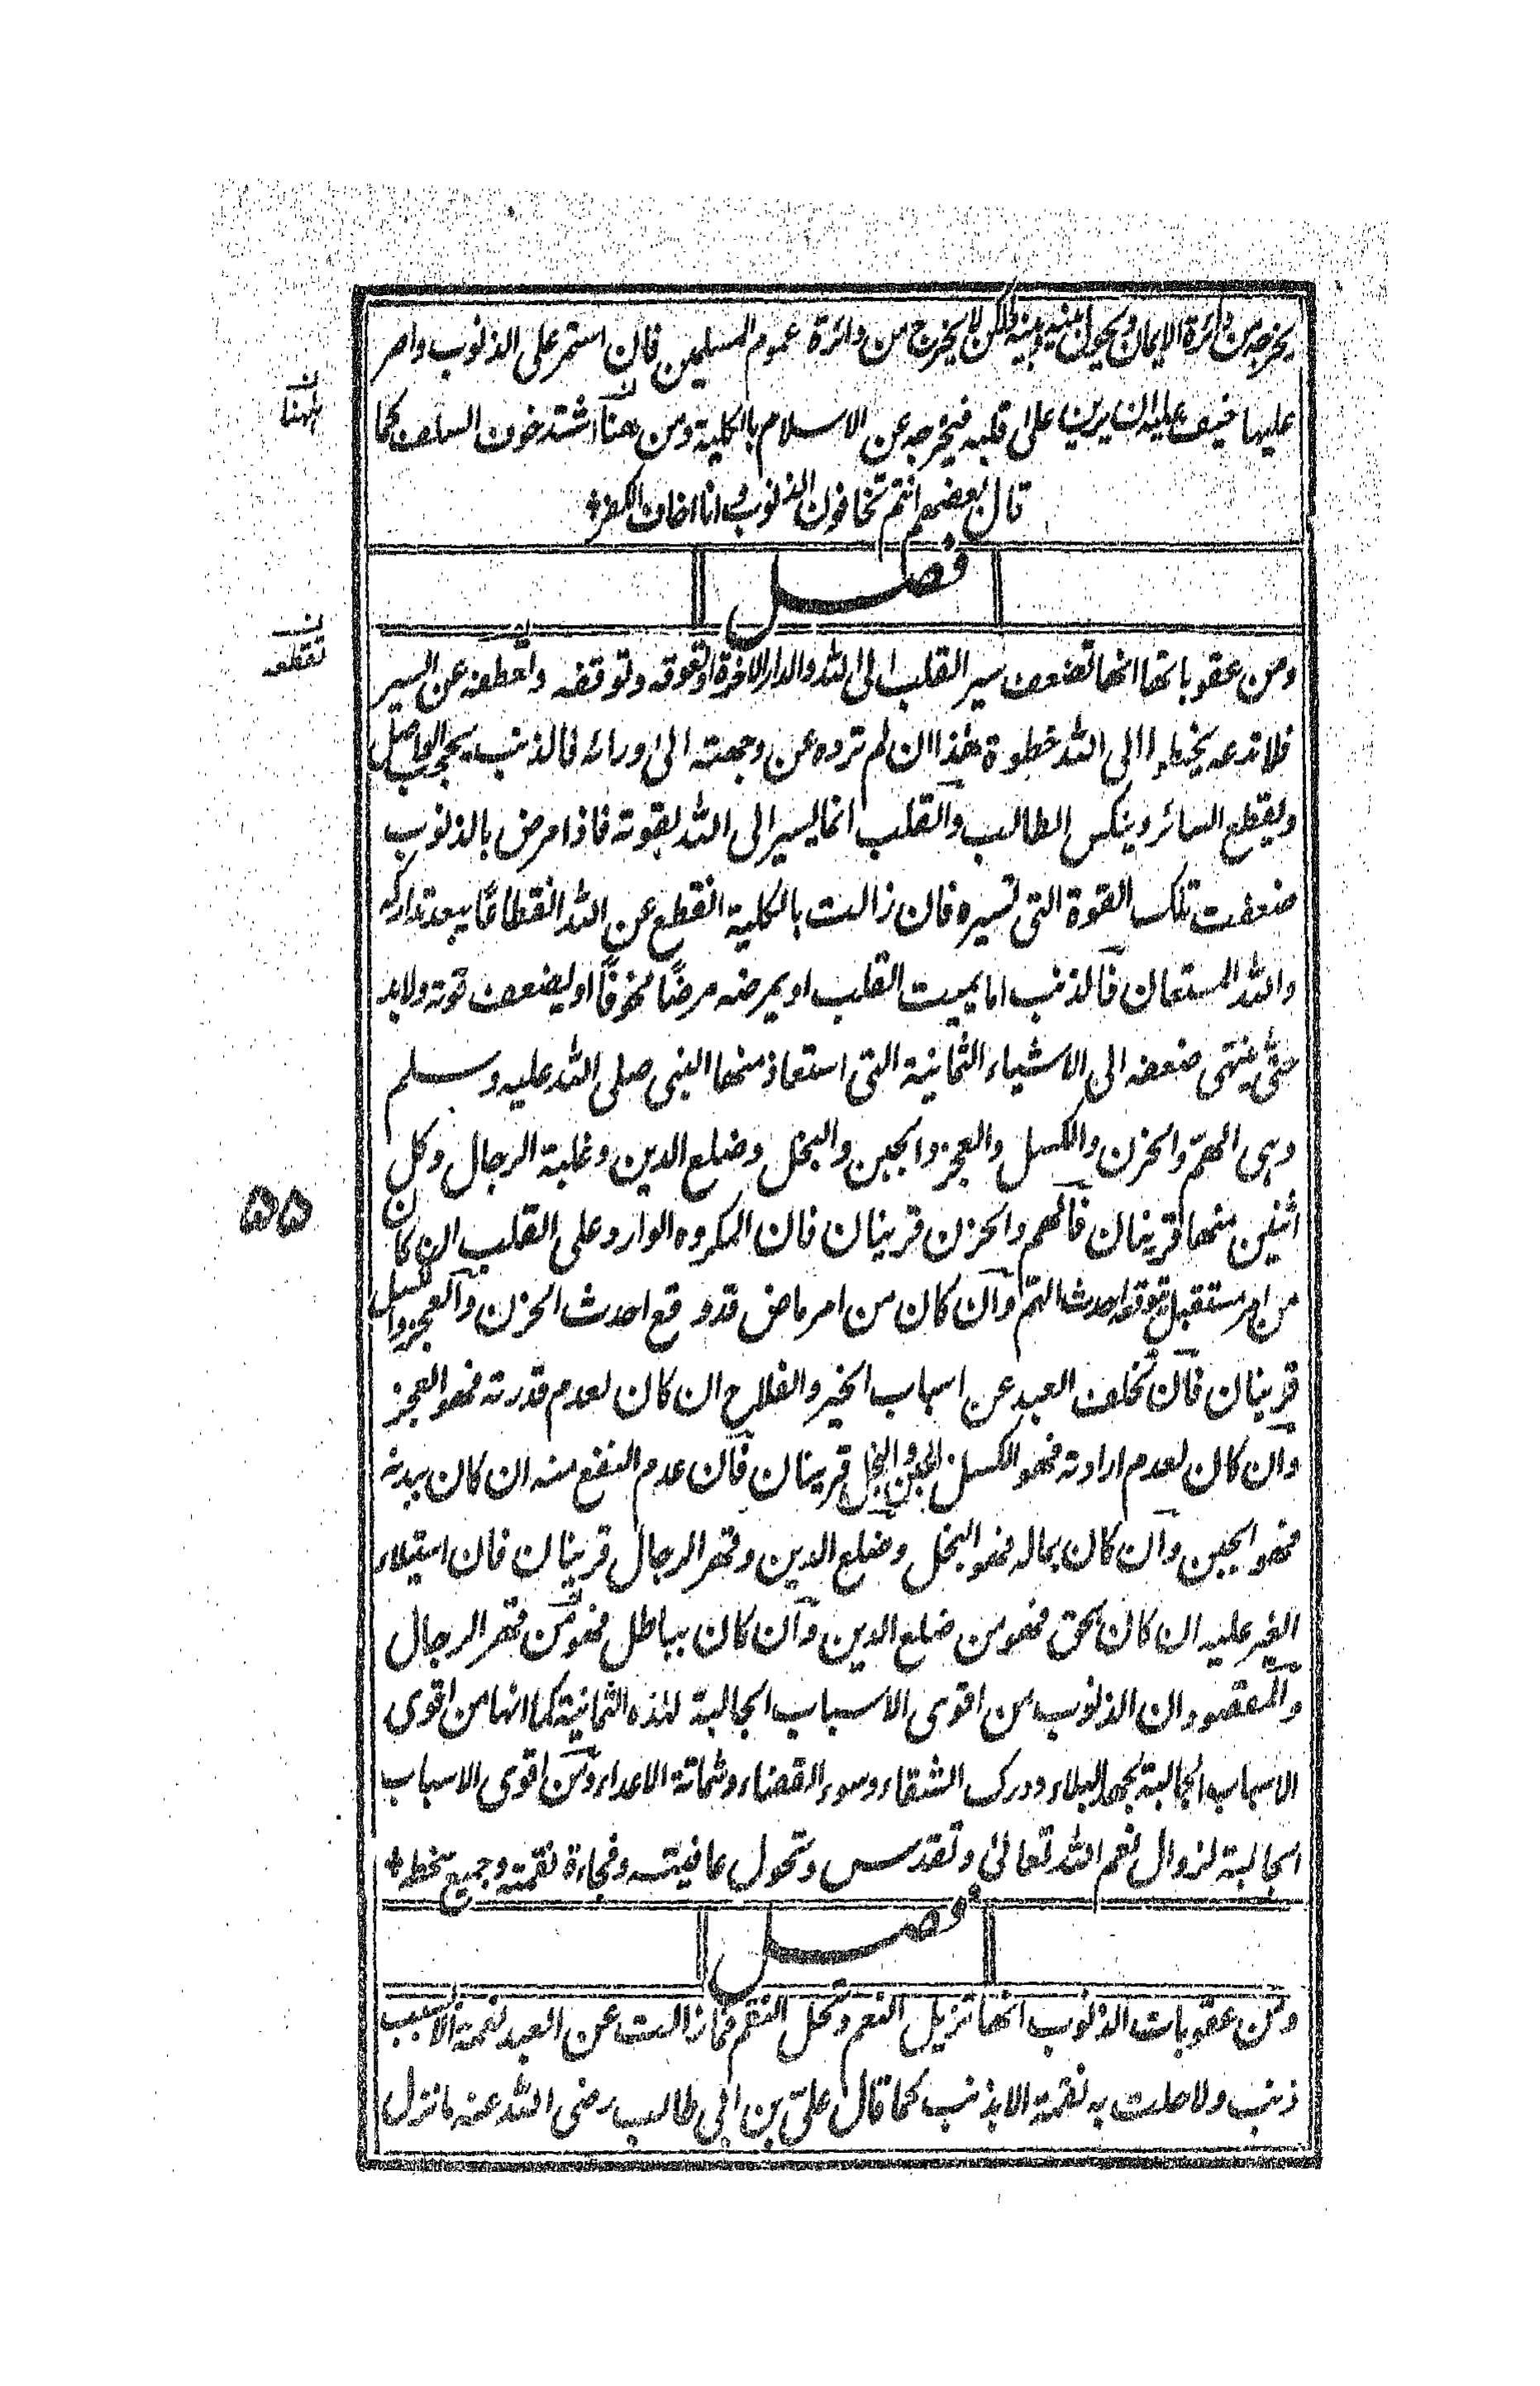 يخرجه من دائرة الايمان ويحول بينه وبينه ولكن لا يخرج من دائرة عموم المسلمين فان استمر على الذنوب واصر
عليها خيف عليه ان يرين على قلبه فيخرجه عن الاسلام بالكلية ومن هنا اشتد خوف السلف كما
ن
بلهنا
قال بعضهم انتم تخافون الذنوب وانا اخاف الكفر
فصل
ومن عقوباتها انها تضعف سير القلب الى الله والدار الاخرة او تعوقه وتوقفه وتعطفه عن السير
ن
تقطعه
فلا تدعه يخطو الى الله خطوة هذا ان لم ترده عن وجهته الى ورائه فالذنب يحجب الواصل
ويقطع السائر وينكس الطالب والقلب انما يسير الى الله بقوته فاذا مرض بالذنوب
ضعفت تلك القوة التي تسيره فان زالت بالكلية انقطع عن الله انقطاعًا يبعد تداركه
والله المستعان فالذنب اما يميت القلب او يمرضه مرضًا مخوفًا او يضعف قوته ولابد
حتى ينتهى ضعفه الى الاشياء الثمانية التي استعاذ منها النبى صلى الله عليه وسلم
وهى الهم والحزن والكسل والعجز والجبن والبخل وضلع الدين وغلبة الرجال وكل
اثنين منها قرينان فالهم والحزن قرينان فان المكروه الوارد على القلب ان كان
من امر مستقبل يتوقعه احدث الهم وان كان من امر ماض قد وقع احدث الحزن والعجز والكسل
۵۵
قرينان فان تخلف العبد عن اسباب الخير والفلاح ان كان لعدم قدرته فهو العجز
وان كان لعدم ارادته فهو الكسل والجبن والبخل قرينان فان عدم النفع منه ان كان ببدنه
فهو الجبن وان كان بماله فهو البخل وضلع الدين وقهر الرجال قرينان فان استيلاء
الغير عليه ان كان بحق فهو من ضلع الدين وان كان بباطل فهو من قهر الرجال
والمقصود ان الذنوب من اقوى الاسباب الجالبة لهذه الثمانية كما انها من اقوى
الاسباب الجالبة لجهد البلاء ودرك الشقاء وسوء القضاء وشماتة الاعداء ومن اقوى الاسباب
الجالبة لزوال نعم الله تعالى وتقدس وتحول عافيته وفجاءة نقمته وجميع سخطه
فصل
ومن عقوبات الذنوب انها تزيل النعم وتحل النقم فما زالت عن العبد نعمة الا بسبب
ذنب ولا حلت به نقمة الا بذنب كما قال على بن ابى طالب رضى الله عنه ما نزل